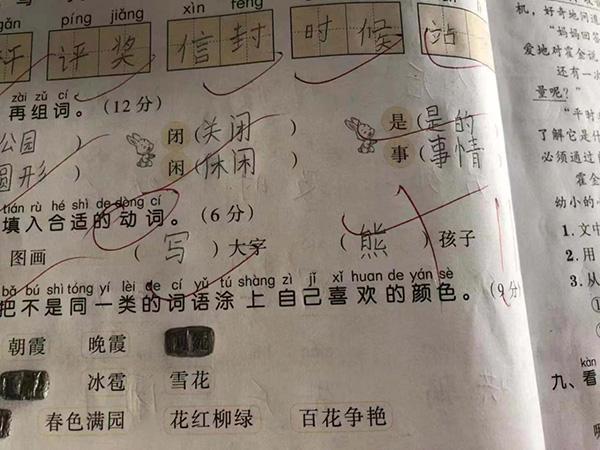 gǎn píng jiǎng xìn fēng shí hòu
评 评 奖 信 封 时 候 站
zài zǔ cí
再组词。(12分)
公园 闭(关闭) 是(是的)
圆形 闲(休闲) 事(事情)
tián rù hé shì de dòng cí
填入合适的动词。(6分)
图画 (写)大字 (熊)孩子
bǎ bú shì tóng yí lèi de cí yǔ tú shàng zì jǐ xǐ huan de yán sè
把不是同一类的词语涂上自己喜欢的颜色。(9分)
朝霞 晚霞
冰雹 雪花
春色满园 花红柳绿 百花争艳
机,好奇地问道
“妈妈回答
爱地对霍金说
还有一次
量呢?”
“平时
了解它是什
必须通过
霍金
幼小的心
1.文中
2.用
3.从
①
kàn
九、看